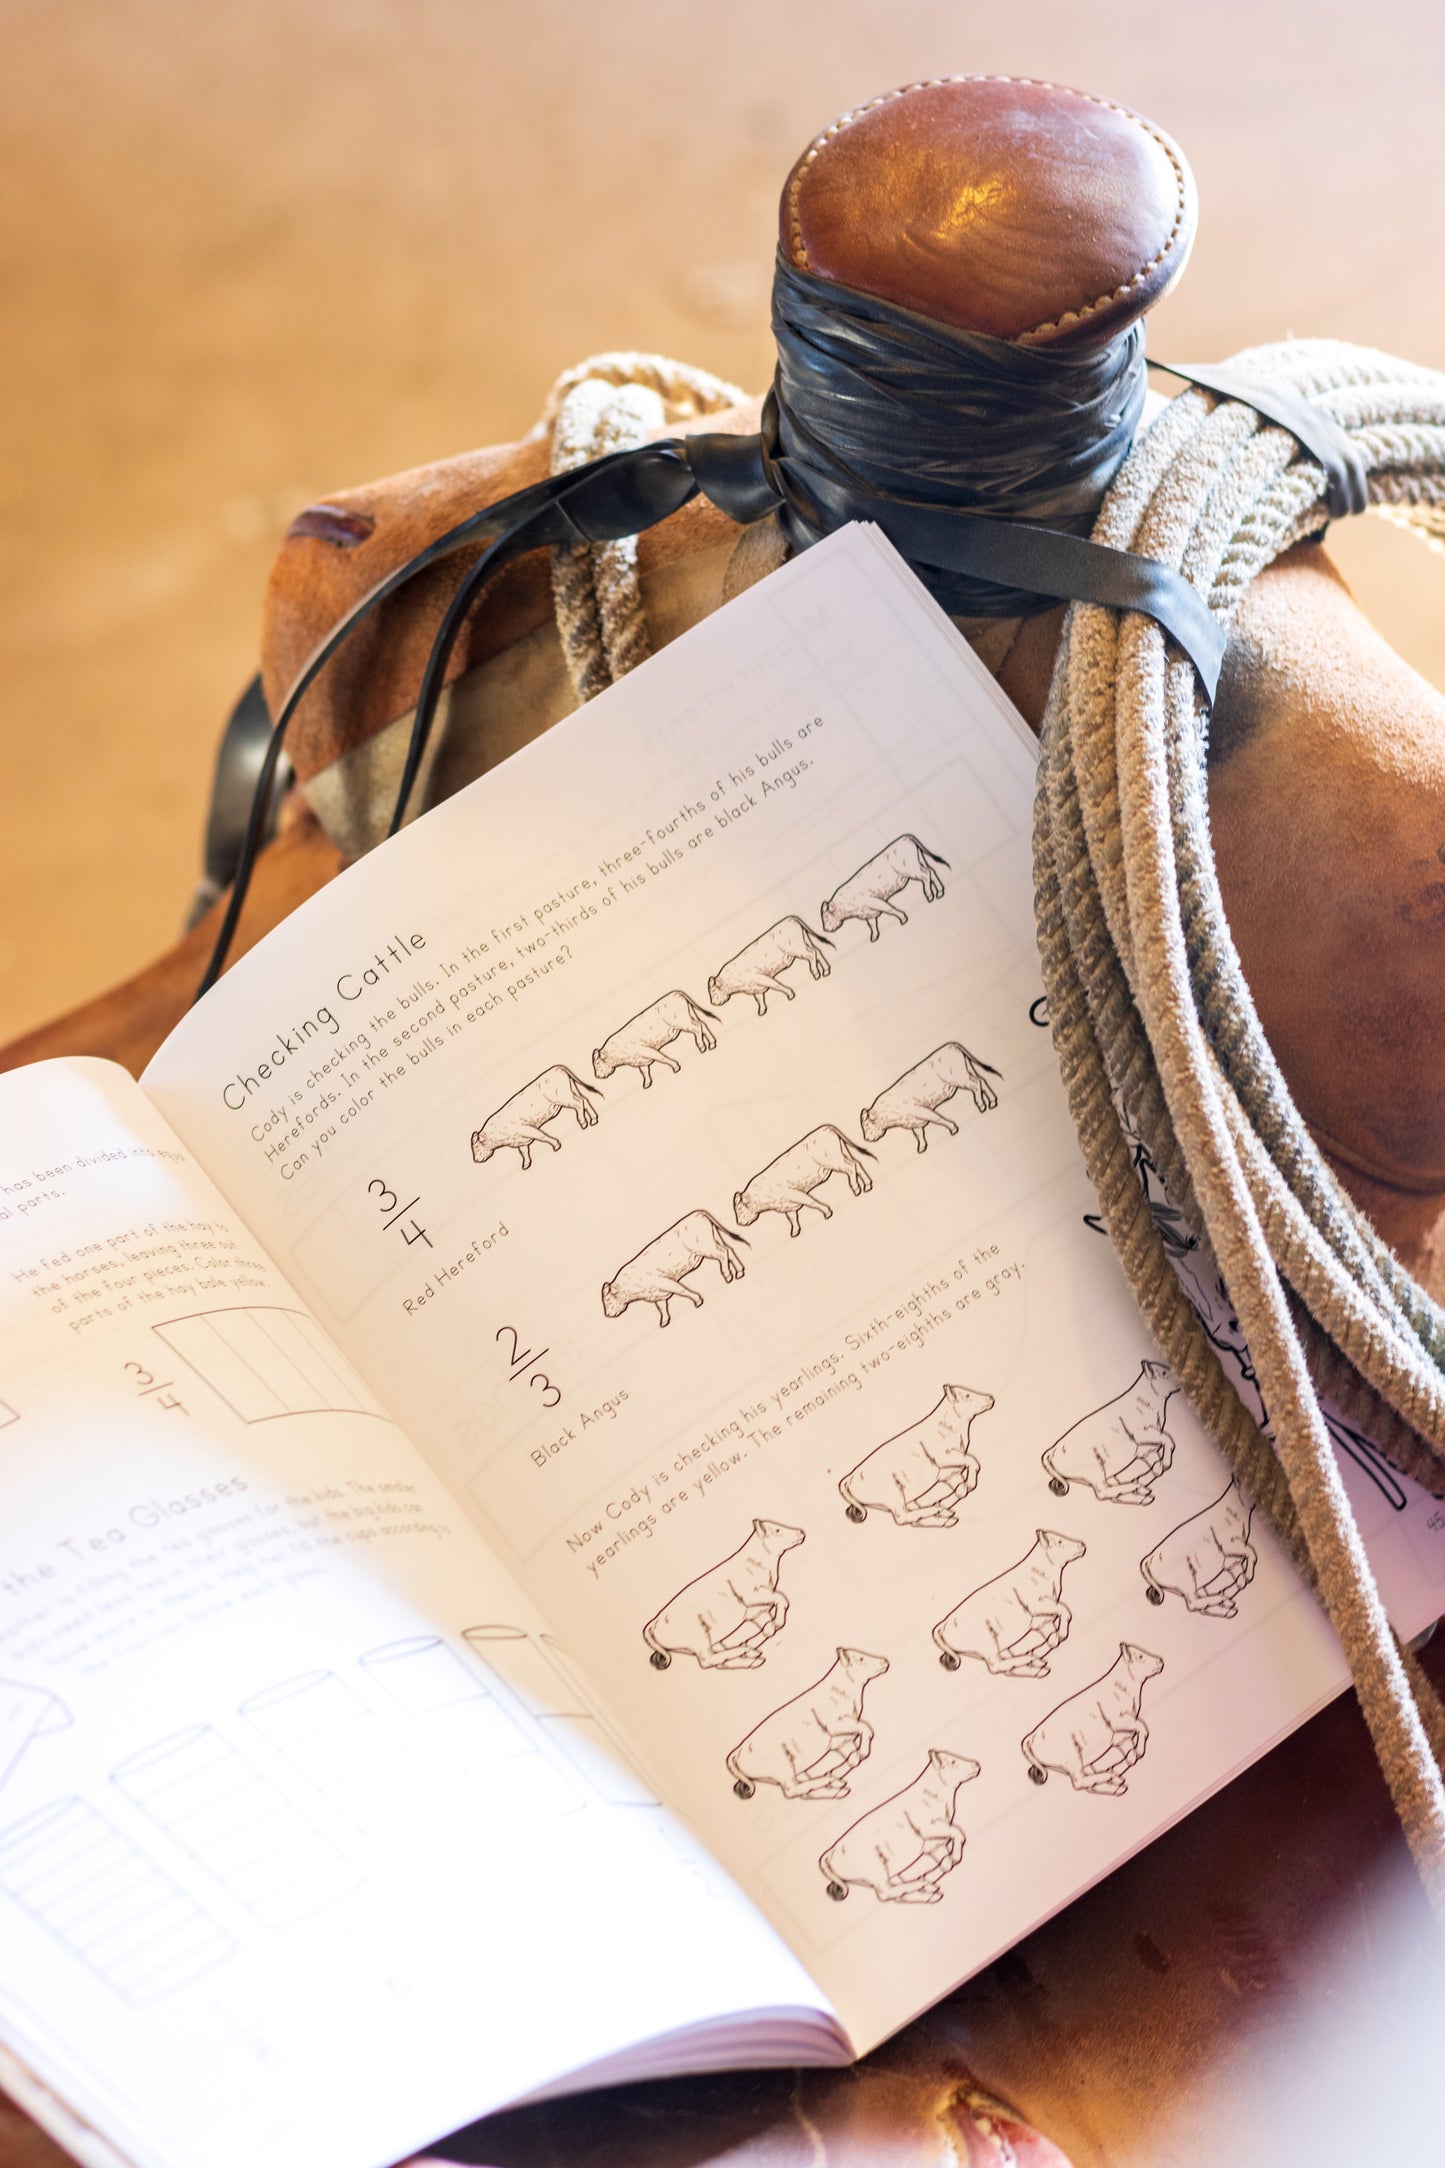 has been divided into equal
al parts.
He fed one part of the hay to
the horses, leaving three out
of the four pieces. Color three
parts of the hay bale yellow.
3
4
the Tea Glasses
is filling the tea glasses for the kids. The smaller
kids need less tea in their glasses, but the big kids can
have more in theirs. Help her fill the cups according to
the fraction below each glass.
Checking Cattle
Cody is checking the bulls. In the first pasture, three-fourths of his bulls are
Herefords. In the second pasture, two-thirds of his bulls are black Angus.
Can you color the bulls in each pasture?
3
4
Red Hereford
2
3
Black Angus
Now Cody is checking his yearlings. Sixth-eighths of the
yearlings are yellow. The remaining two-eighths are gray.
45